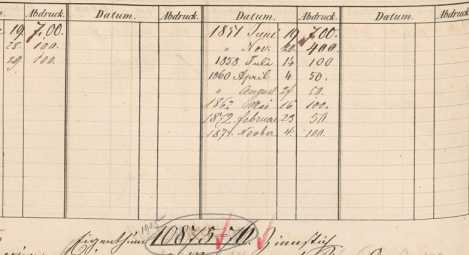 Abdruck. Datum. Abdruck. Datum. Abdruck. Datum. Abdruck
19 700. 1851 Juni 19 700.
28. 100. " Nov. 400.
29. 100. 1858 Juli 14 100
1860 April 4 50.
" August 50.
1862 Mai 16 100.
1872 februar 23 50
1874 4. 100.
Eigenthum 10875-70.